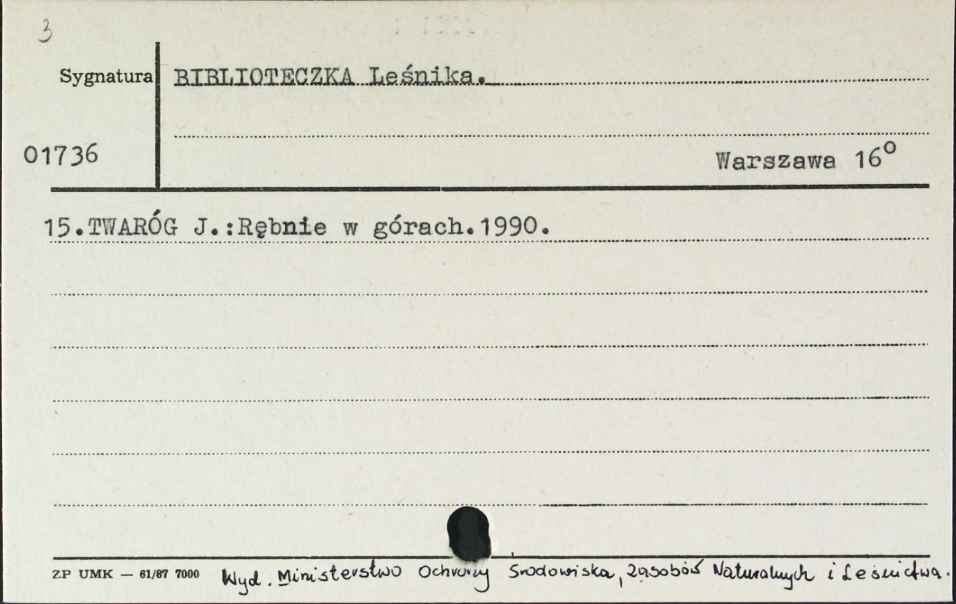 3
Sygnatura BIBLIOTECZKA Leśnika.
01736
Warszawa 16°
15.TWARÓG J.:Rębnie w górach.1990.
ZP UMK — 61/87 7000 Wyd. Ministerstwo Ochrony Środowiska, Zasobów Naturalnych i Leśnictwa.